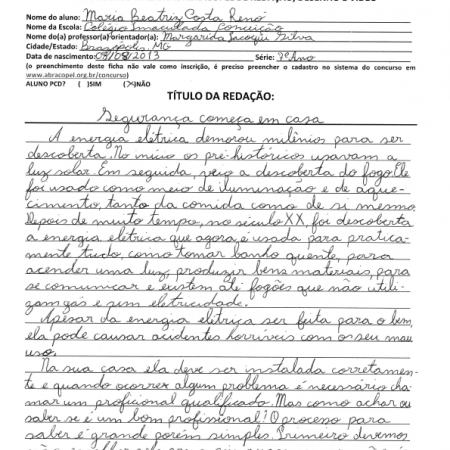 Nome do aluno: Maria Beatriz Costa Renó
Nome da Escola: Colégio Imaculada Conceição
Nome do(a) professor(a)orientador(a): Margarida Silva
Cidade/Estado: Brazópolis, MG
Data de nascimento: 09/08/2013 Série: 7º Ano
(o preenchimento desta ficha não vale como inscrição, é preciso preencher o cadastro no sistema do concurso em
www.abracopel.org.br/concurso)
ALUNO PCD? ( )SIM (X)NÃO
TÍTULO DA REDAÇÃO:
Segurança começa em casa
A energia elétrica demorou milênios para ser
descoberta. No início os pré-históricos usavam a
luz solar. Em seguida, veio a descoberta do fogo. Ele
foi usado como meio de iluminação e de aque-
cimento, tanto da comida como de si mesmo.
Depois de muito tempo, no século XX, foi descoberta
a energia elétrica que agora é usada para pratica-
mente tudo, como tomar banho quente, para
acender uma luz, produzir bens materiais, para
se comunicar e existem até fogões que não utili-
zam gás e sim eletricidade.
Apesar da energia elétrica ser feita para o bem,
ela pode causar acidentes horríveis com o seu mau
uso.
Na sua casa ela deve ser instalada corretamen-
te e quando ocorrer algum problema é necessário cha-
mar um profissional qualificado. Mas como achar ou
saber se é um bom profissional? O processo para
saber é grande porém simples. Primeiro devemos